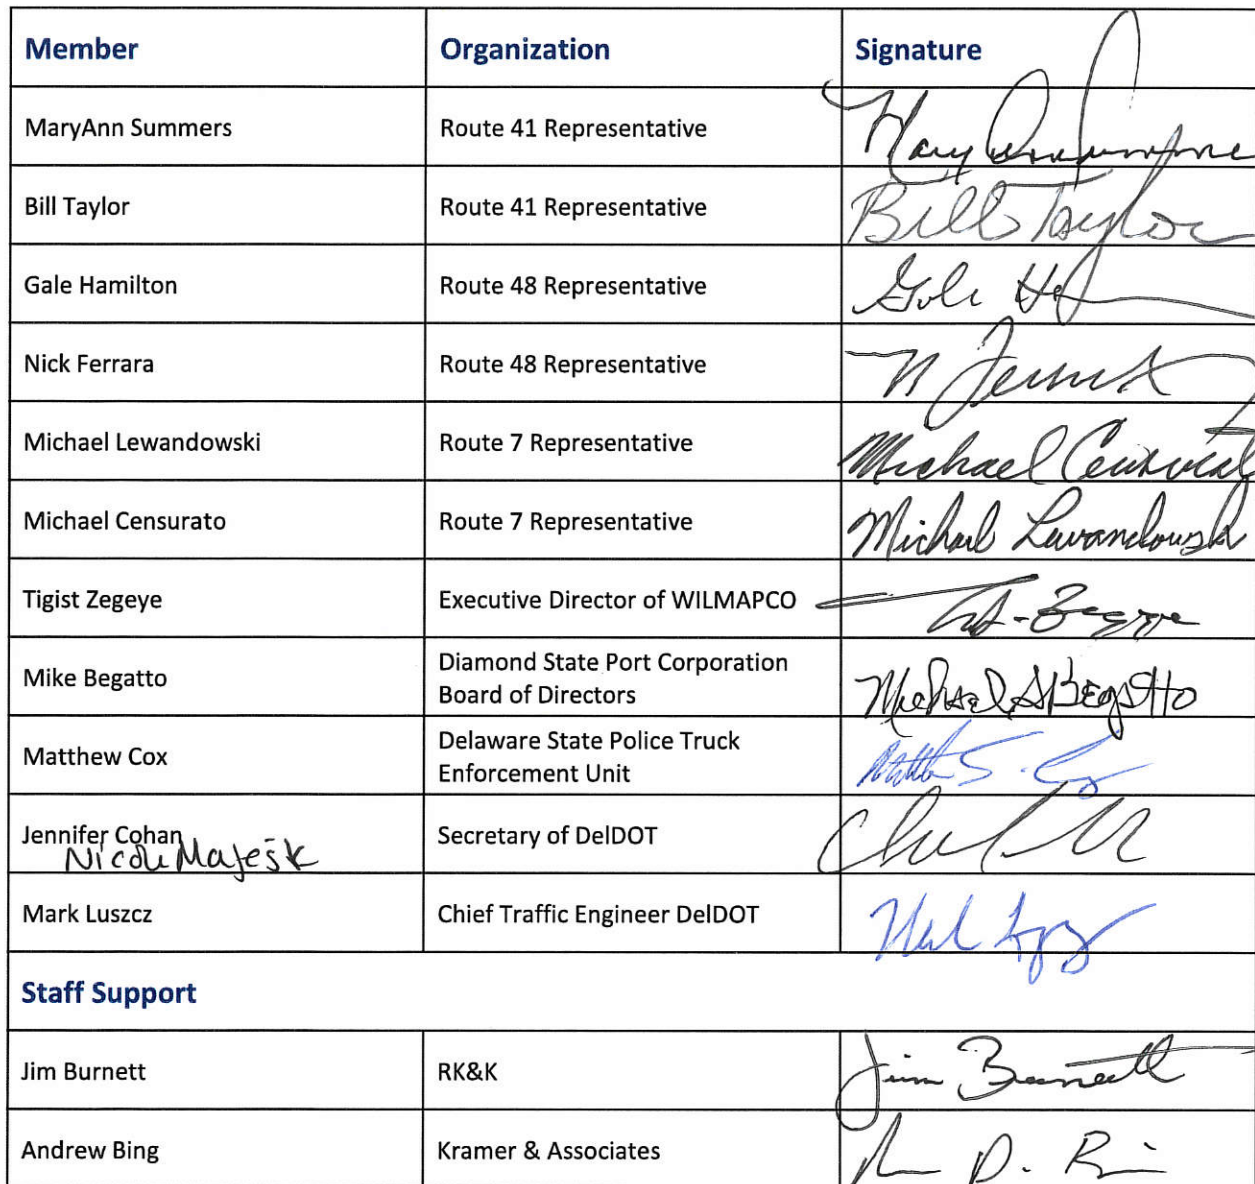 Member Organization Signature
MaryAnn Summers Route 41 Representative
Bill Taylor Route 41 Representative Bill Taylor
Gale Hamilton Route 48 Representative
Nick Ferrara Route 48 Representative
Michael Lewandowski Route 7 Representative Michael
Michael Censurato Route 7 Representative Michael Lewandowski
Tigist Zegeye Executive Director of WILMAPCO
Mike Begatto Diamond State Port Corporation
Board of Directors Michael Begatto
Matthew Cox Delaware State Police Truck
Enforcement Unit
Jennifer Cohan Secretary of DelDOT
Nicole Majesk
Mark Luszcz Chief Traffic Engineer DelDOT
Staff Support
Jim Burnett RK&K Jim Burnett
Andrew Bing Kramer & Associates